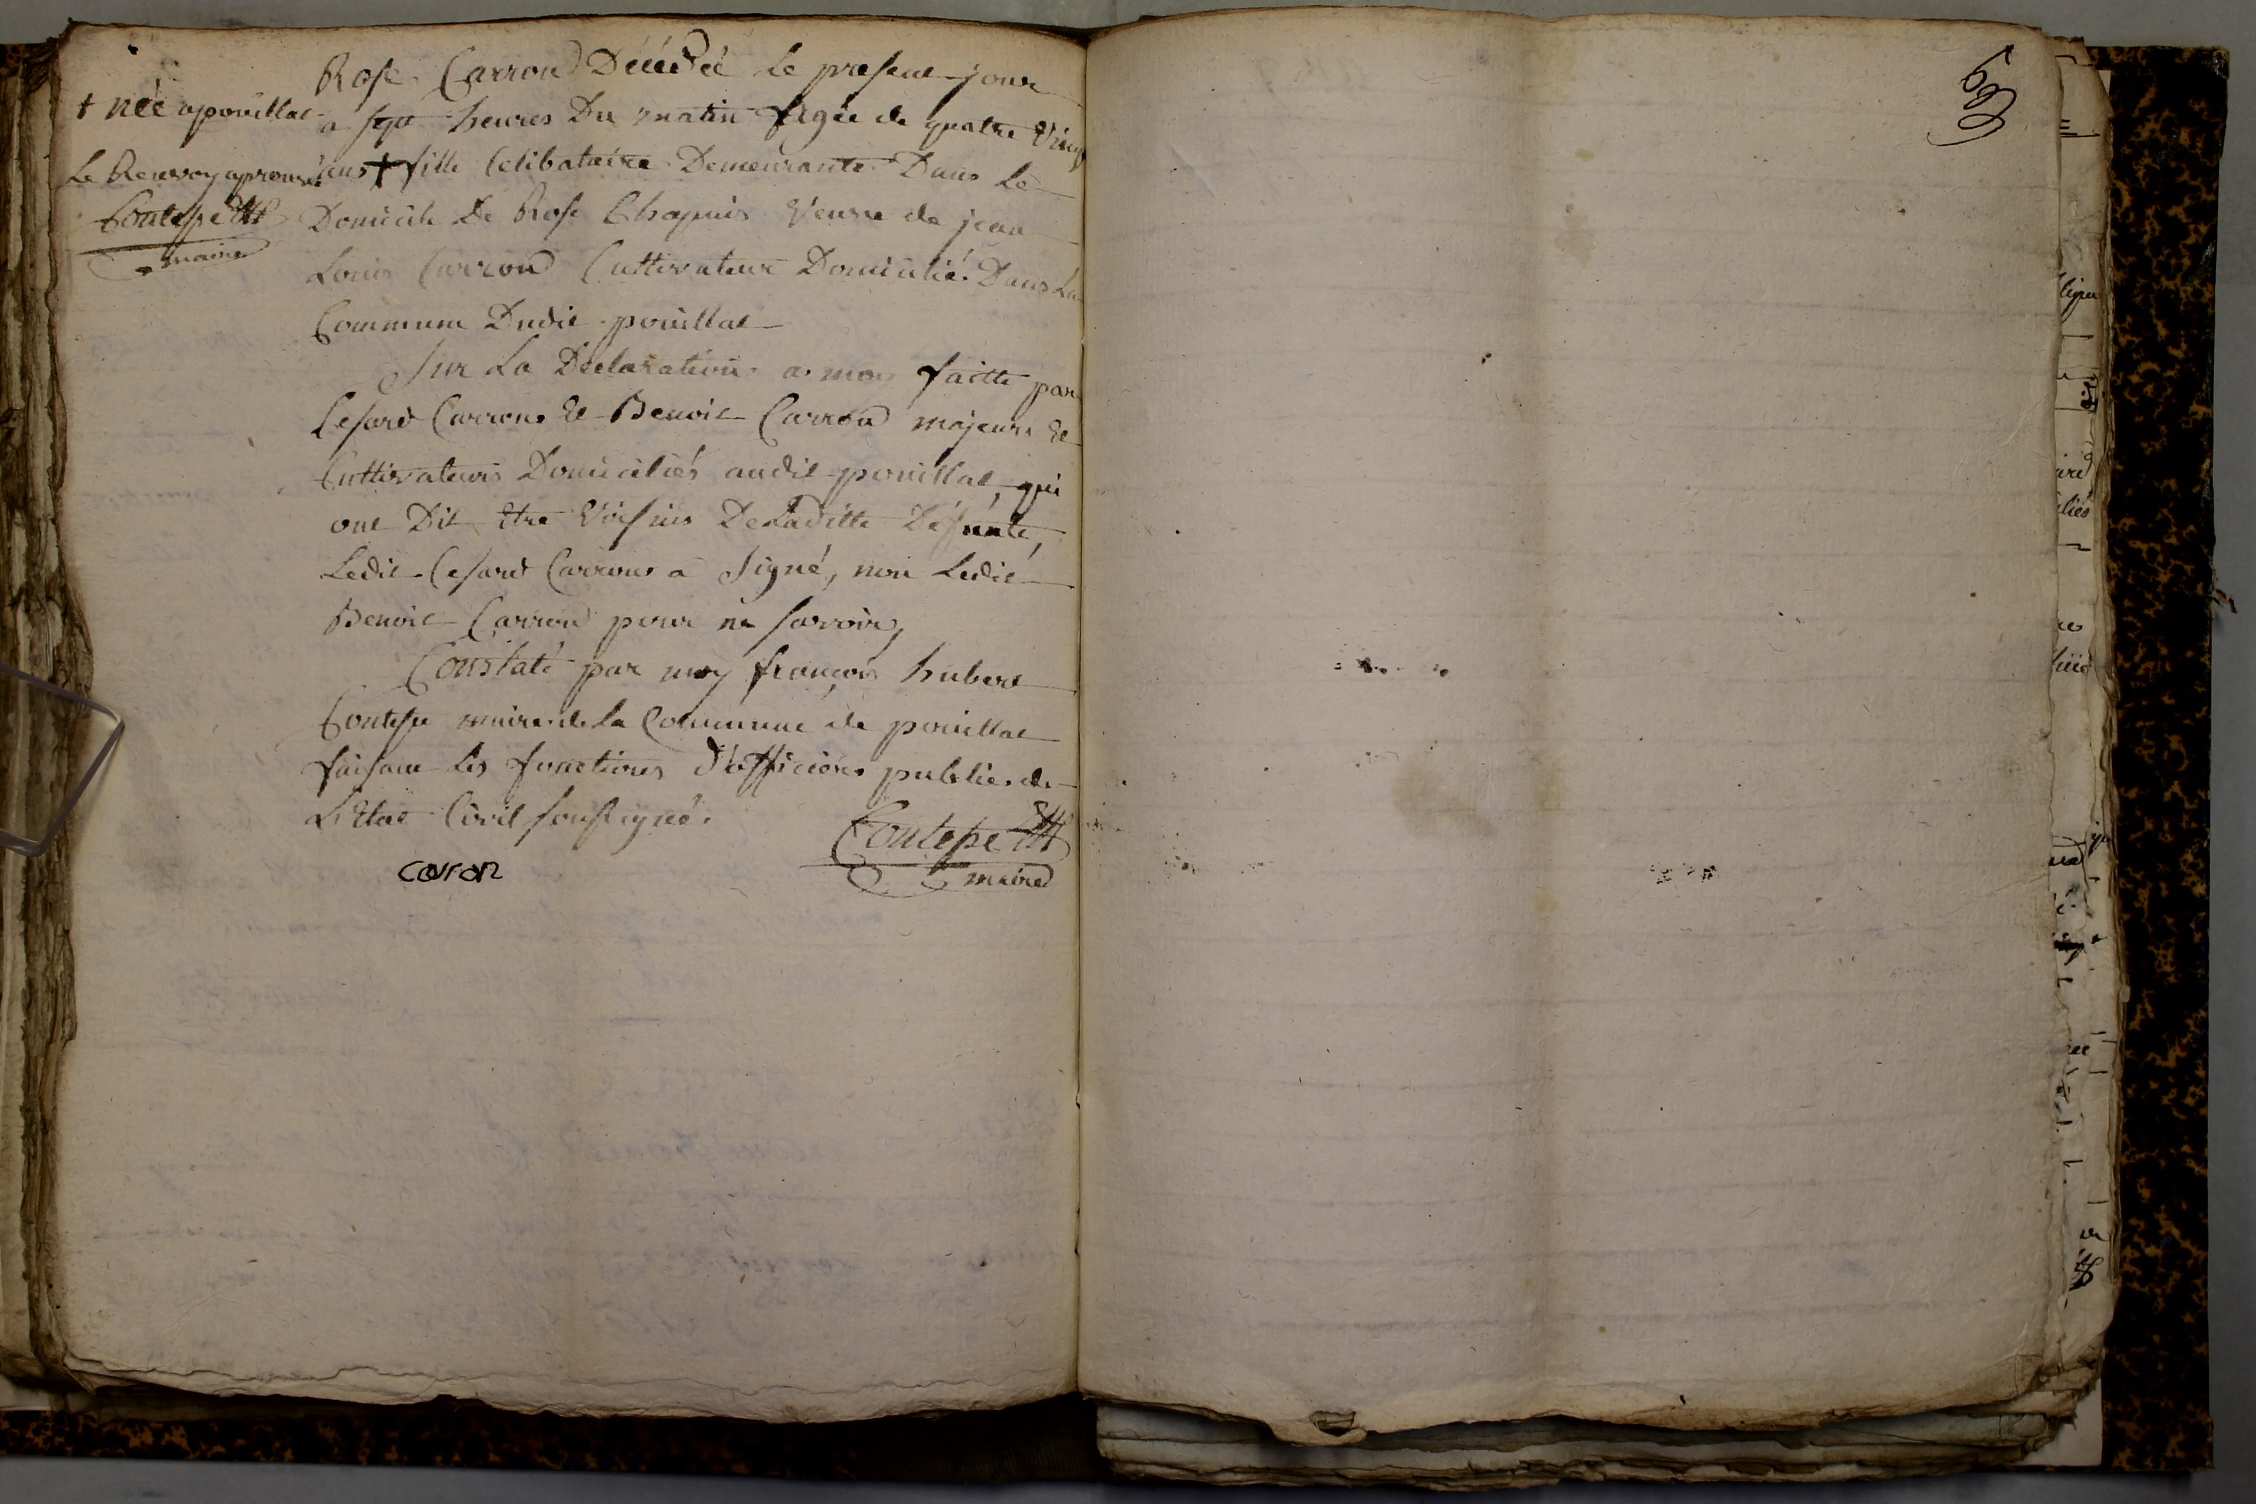 63
Rose Carron Décédeé Le present jour
a sept heures Du matin Agée de quatre Vingt
ans + fille Celibataire Demeurante Dans Le
Domicile De Rose Chapuis Veuve de jean
Louis Carron Cultivateur Domicilié Dans La
Commune Dudit pouillat
Sur La Declaration a moy faitte par
Cesard Carron Et Benoit Carron majeurs Et
Cultivateurs Domiciliés audit pouillat, qui
ont Dit Etre Voisins De Laditte Défunte,
Ledit Cesard Carron a Signé, non Ledit
Benoit Carron pour ne savoir,
Constaté par moy françois hubert
Contepe maire de La Commune de pouillat
faisant Les fonctions d'officier public de
L'Etat Civil soussigné.
+ neé a pouillat
Le Renvoy aprouvé
Contepe
maire
caron
Contepe
maire